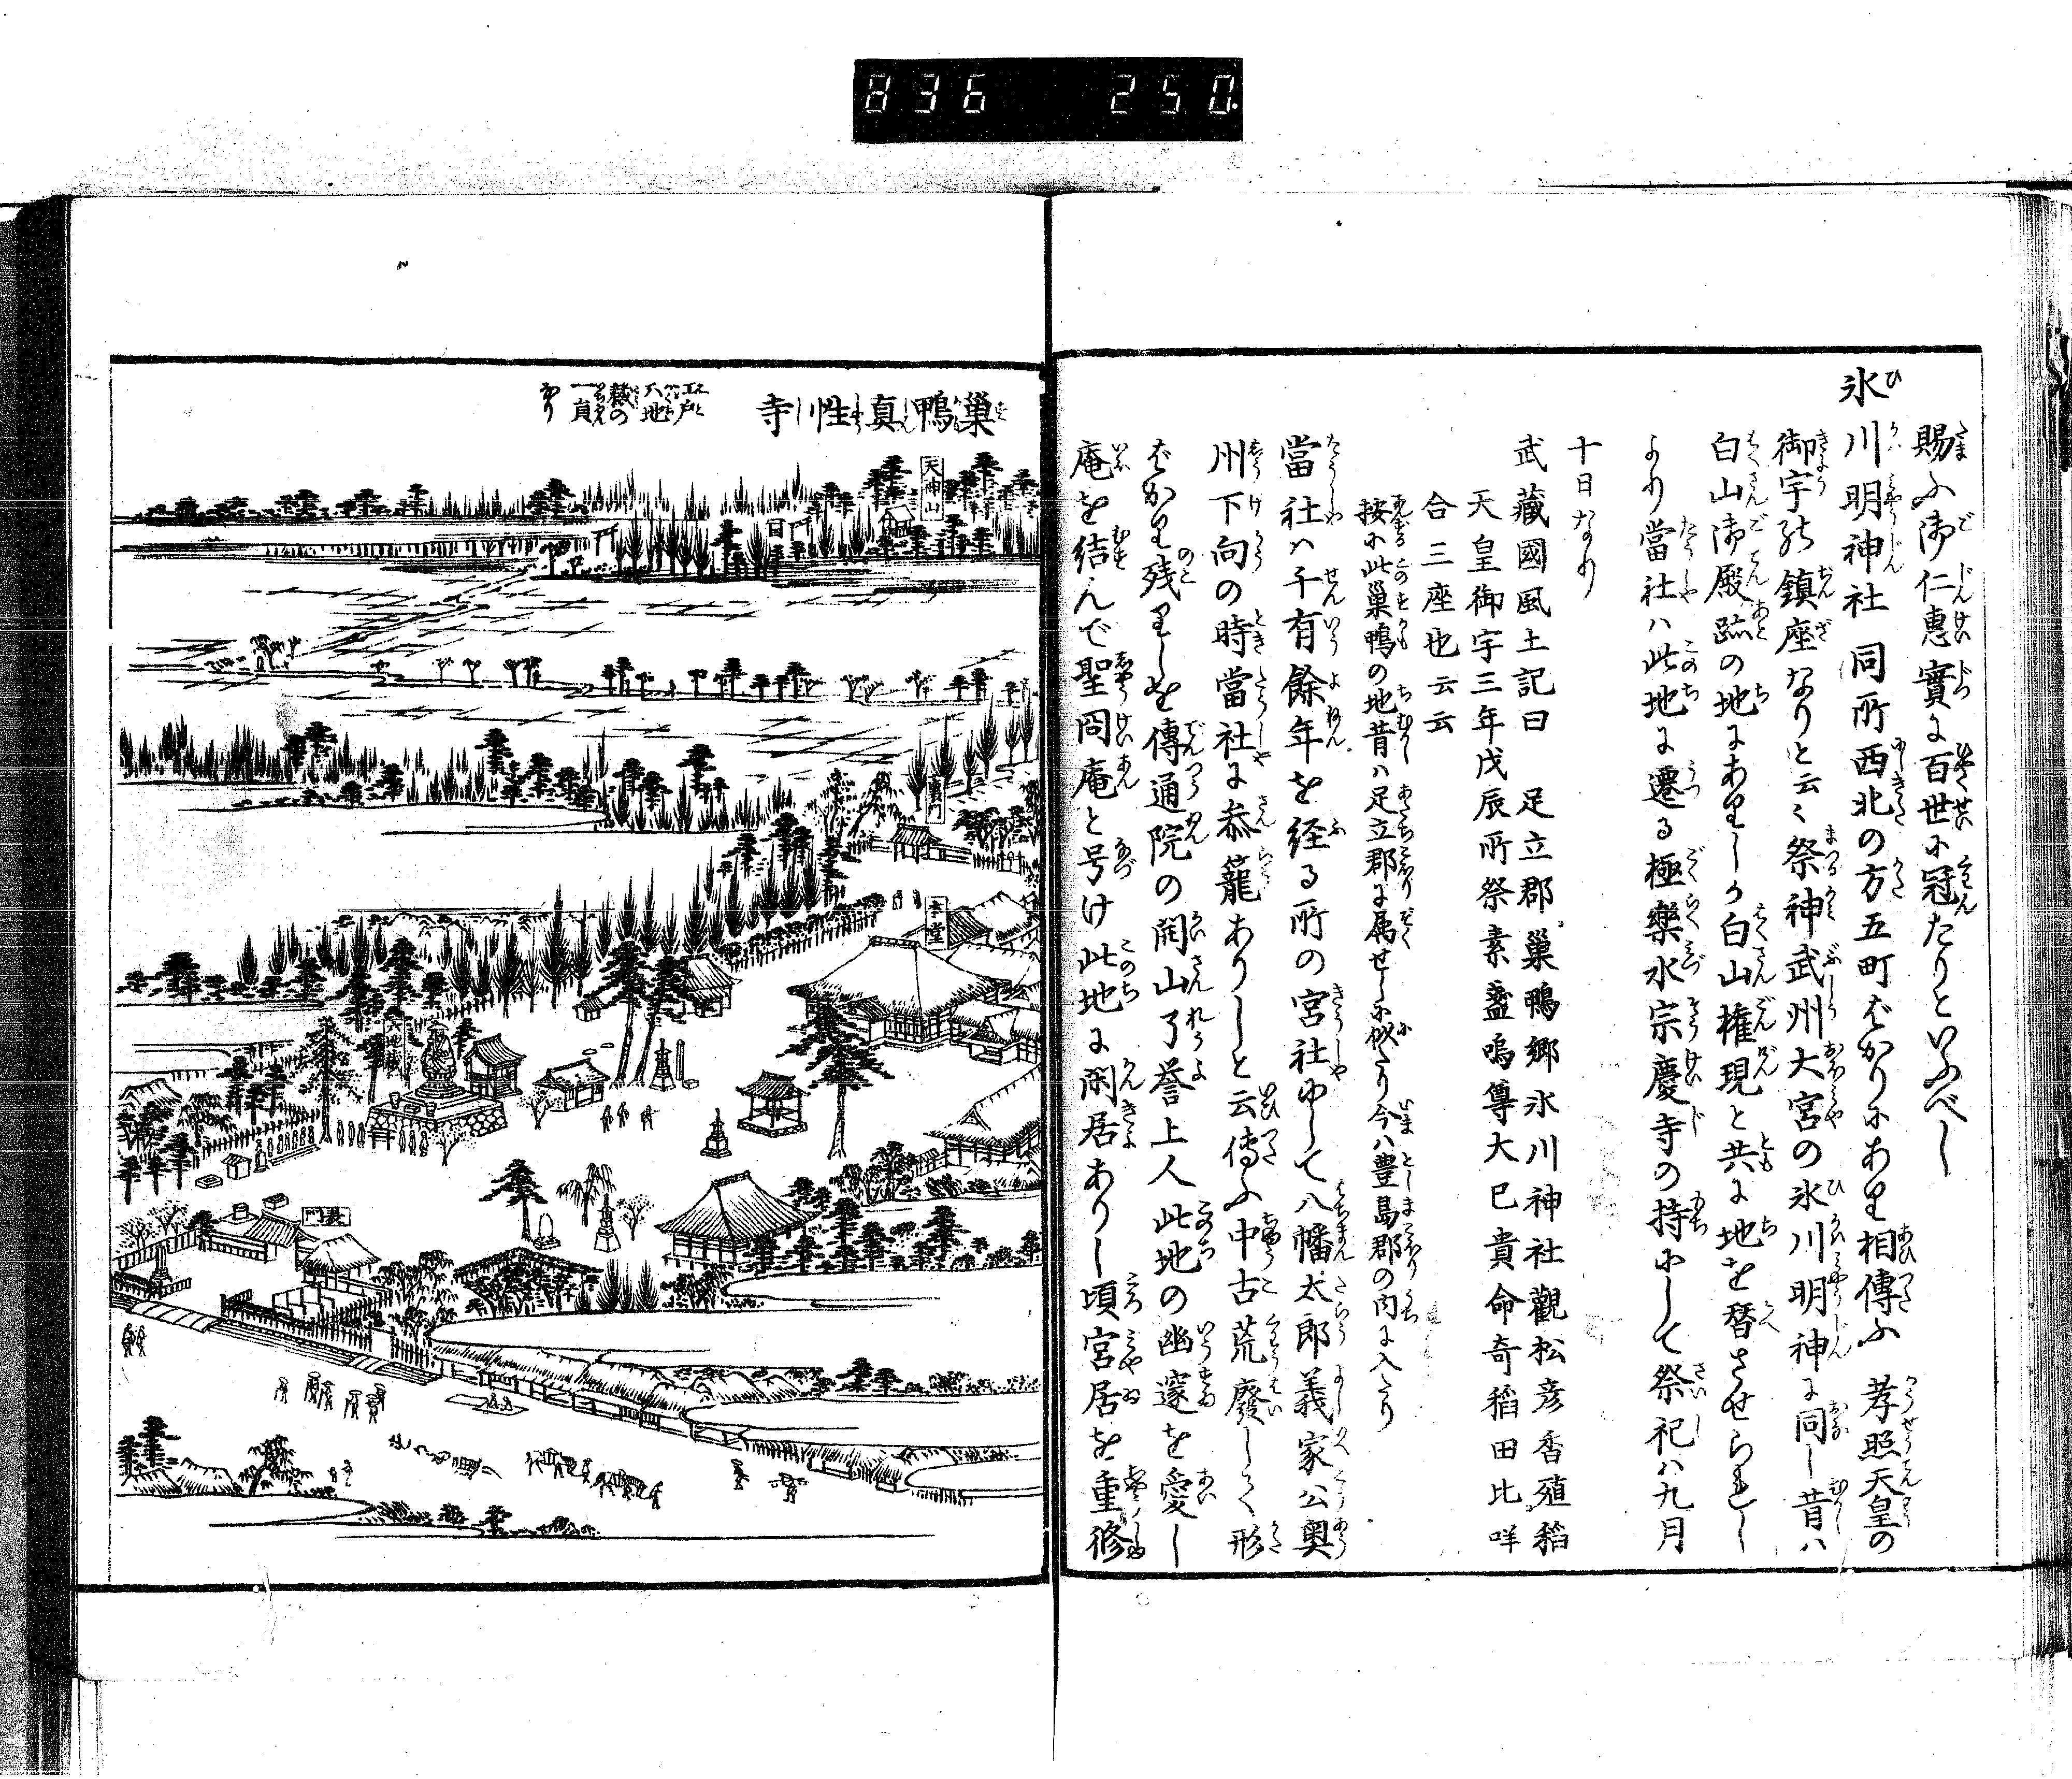 836 250.
賜ふ御仁惠實に百世に冠たりといふべし
氷川明神社 同所西北の方五町ばかりにあり相傳ふ 孝照天皇の
御宇の鎮座なりと云々祭神武州大宮の氷川明神に同し昔ハ
白山御殿跡の地にありしか白山権現と共に地を替させられし
より當社ハ此地に遷る極樂水宗慶寺の持にして祭祀ハ九月
十日なり
武藏國風土記曰 足立郡巣鴨郷氷川神社觀松彦香殖稲
天皇御宇三年戊辰所祭素盞嗚尊大已貴命奇稲田比咩
合三座也云云
按に此巣鴨の地昔ハ足立郡に属せしに似たり今ハ豊島郡の内に入たり
當社ハ千有餘年を経る所の宮社にして八幡太郎義家公奥
州下向の時當社に恭籠ありしと云傳ふ中古荒廢して形
ばかり残りしを傳通院の開山了誉上人此地の幽邃を愛し
庵を結んで聖冏庵と号け此地に閑居ありし頃宮居を重修
巣鴨真性寺
江戸
六地
藏の
一員
なり
天神山
裏門
本堂
六地藏
表門